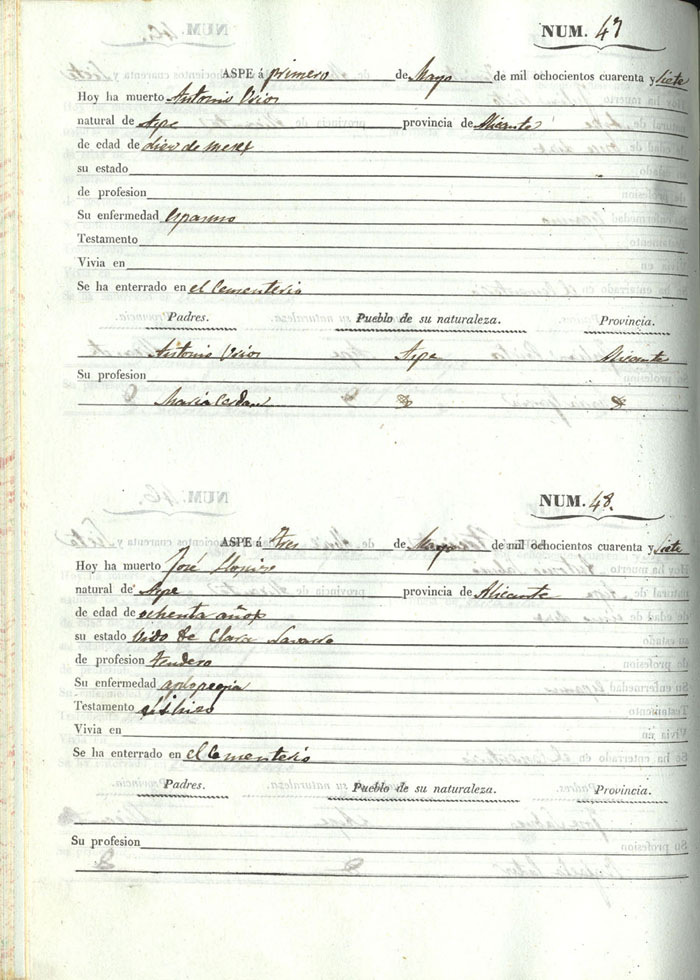 NUM. 47
ASPE á primero de Mayo de mil ochocientos cuarenta y Siete
Hoy ha muerto Antonio
natural de Aspe provincia de Alicante
de edad de diez de meses
su estado
de profesion
Su enfermedad espasmo
Testamento
Vivia en
Se ha enterrado en el Cementerio
Padres. Pueblo de su naturaleza. Provincia.
Antonio Aspe Alicante
Su profesion
Maria
NUM. 48.
ASPE á Tres de Mayo de mil ochocientos cuarenta y Siete
Hoy ha muerto José
natural de Aspe provincia de Alicante
de edad de ochenta años
su estado Vido de Clara
de profesion tendero
Su enfermedad
Testamento
Vivia en
Se ha enterrado en el Cementerio
Padres. Pueblo de su naturaleza. Provincia.
Su profesion